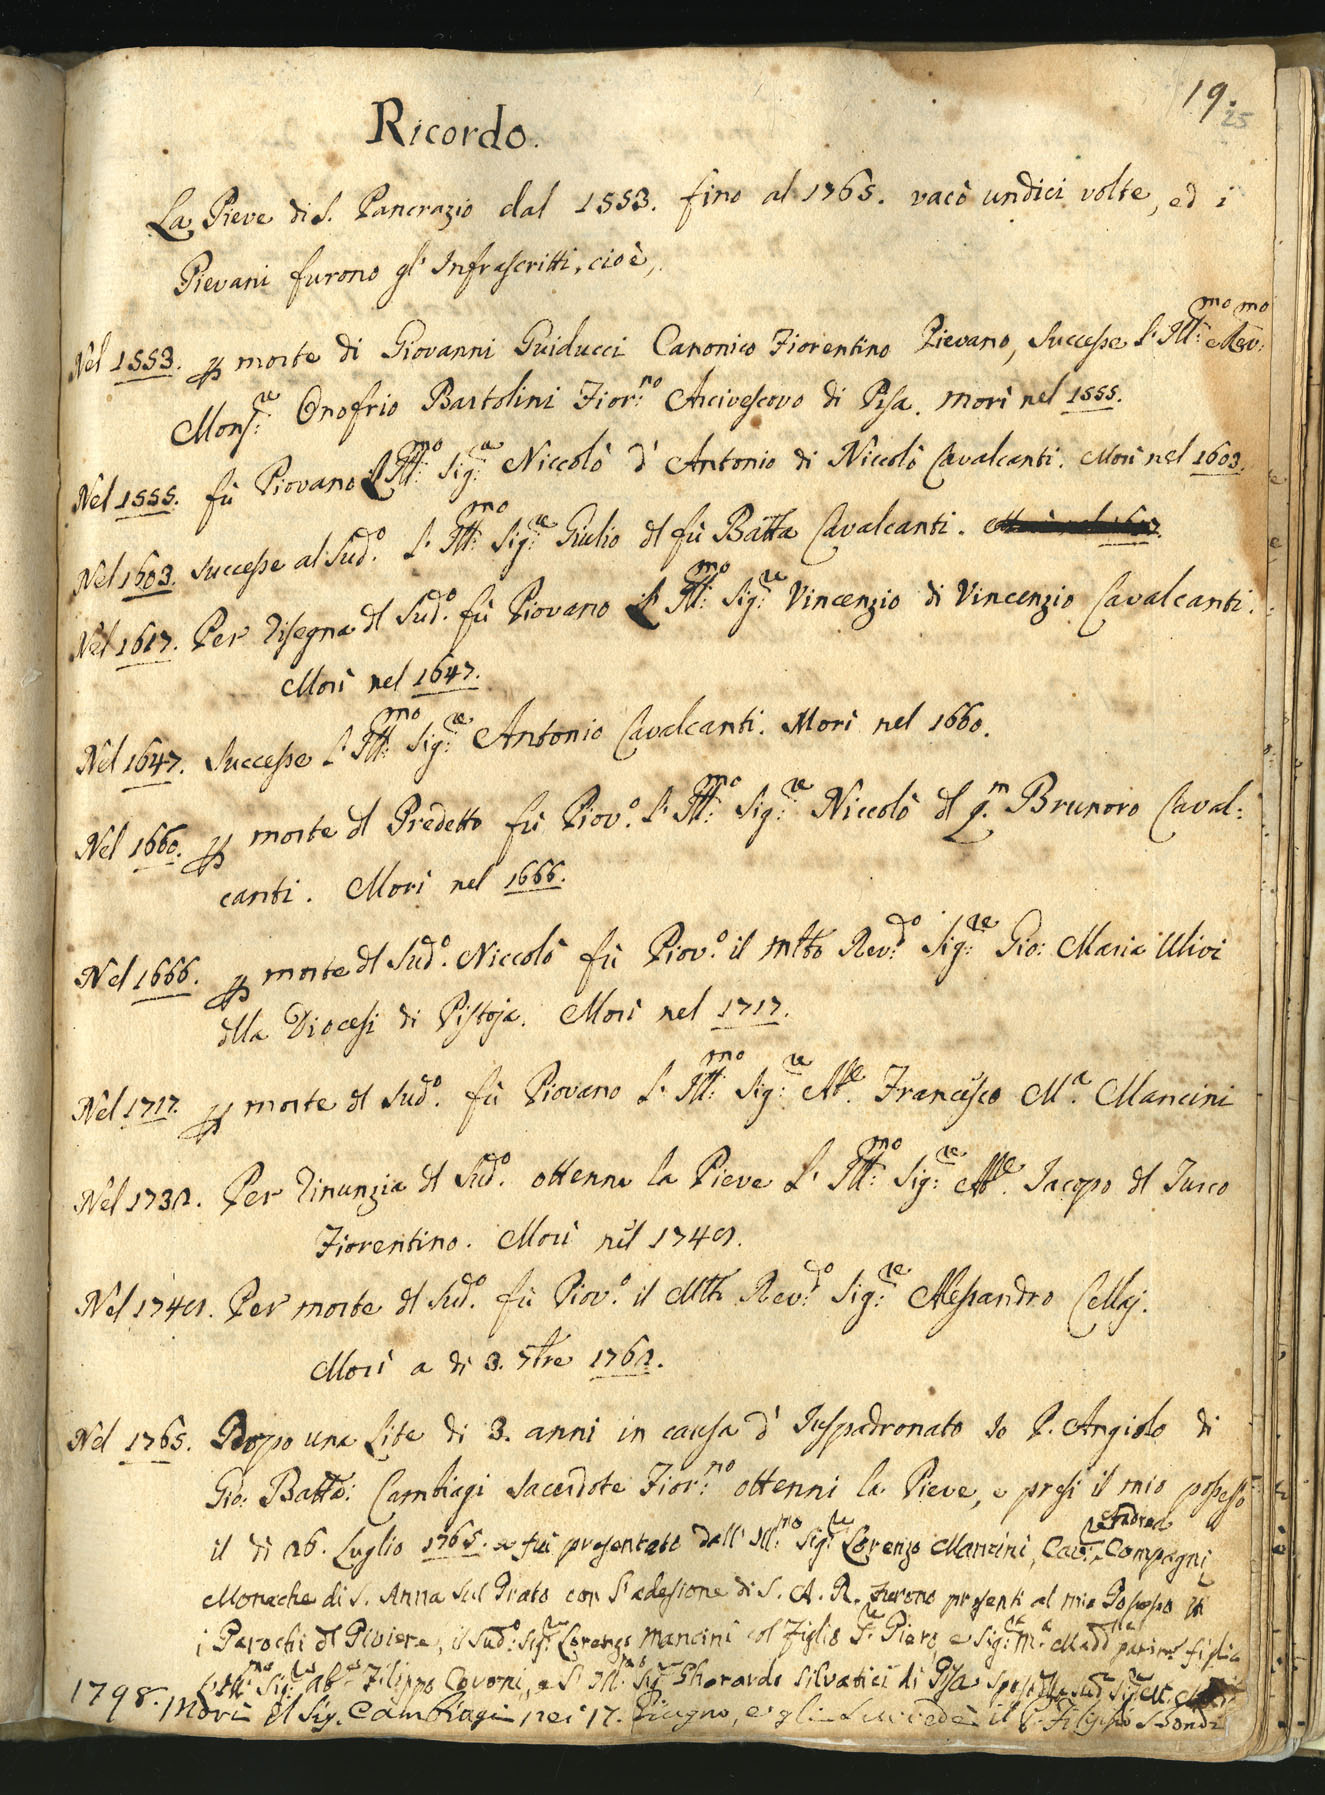 19.
25
Ricordo.
La Pieve di S. Pancrazio dal 1553. fino al 1765. vacò undici volte, ed i
Pievani furono gl' Infrascritti, cioè,
Nel 1553. p morte di Giovanni Guiducci Canonico Fiorentino Pievano, Successe l' Ill:mo Rev:mo
Mons:re Onofrio Bartolini Fior:no Arcivescovo di Pisa. morì nel 1555.
Nel 1555. fù Piovano l' Ill:mo Sig:re Niccolò d' Antonio di Niccolò Cavalcanti. Morì nel 1603.
Nel 1603. successe al Sud:o l' Ill:mo Sig:re Giulio dl fù Batta Cavalcanti.
Nel 1617. Per risegna dl Sud:o fù Piovano l' Ill:mo Sig:re Vincenzio di Vincenzio Cavalcanti.
Morì nel 1647.
Nel 1647. Successe l' Ill:mo Sig:re Antonio Cavalcanti. Morì nel 1660.
Nel 1660. p morte dl Predetto fù Piov.o l' Ill:mo Sig:re Niccolò dl q.m Brunoro Caval:
canti. Morì nel 1666.
Nel 1666. p morte dl Sud:o Niccolò fù Piov.o il mlto Rev:do Sig:re Gio: Maria Ulivi
dlla Diocesi di Pistoja. Morì nel 1717.
Nel 1717. p morte dl Sud:o fù Piovano l' Ill:mo Sig:re Ab:e Francesco M.a Mancini
Nel 1732. Per rinunzia dl Sud:o ottenne la Pieve l' Ill:mo Sig:re Ab:e Jacopo dl Turco
Fiorentino. Morì nel 1742.
Nel 1742. Per morte dl Sud:o fù Piov.o il Mlto Rev:do Sig:re Alessandro Cellaj.
Morì a dì 3. 7bre 1762.
Nel 1765. Dopo una Lite di 3. anni in causa d' Juspadronato Io P. Angiolo di
Gio: Batta: Cambiagi Sacerdote Fior:no ottenni la Pieve, e presi il mio possesso
il dì 26. Luglio 1765. e fui presentato dall' Ill:mo Sig:re Lorenzo Mancini, Cav:re Andrea Compagni,
Monache di S. Anna sul Prato con l' adesione di S. A. R. furono presenti al mio Possesso
i Parochi dl Piviere, il Sud:o Sig:re Lorenzo Mancini col Figlio S:re Piero, e Sig:ra M:a Madd
l' Ill:mo Sig:re Ab:e Filippo Covoni, e l' Ill:mo Sig:re Gherardo Silvatici di Pisa
1798. Morì il Sig. Cambiagi nei 17. Giugno, e gli succedè il